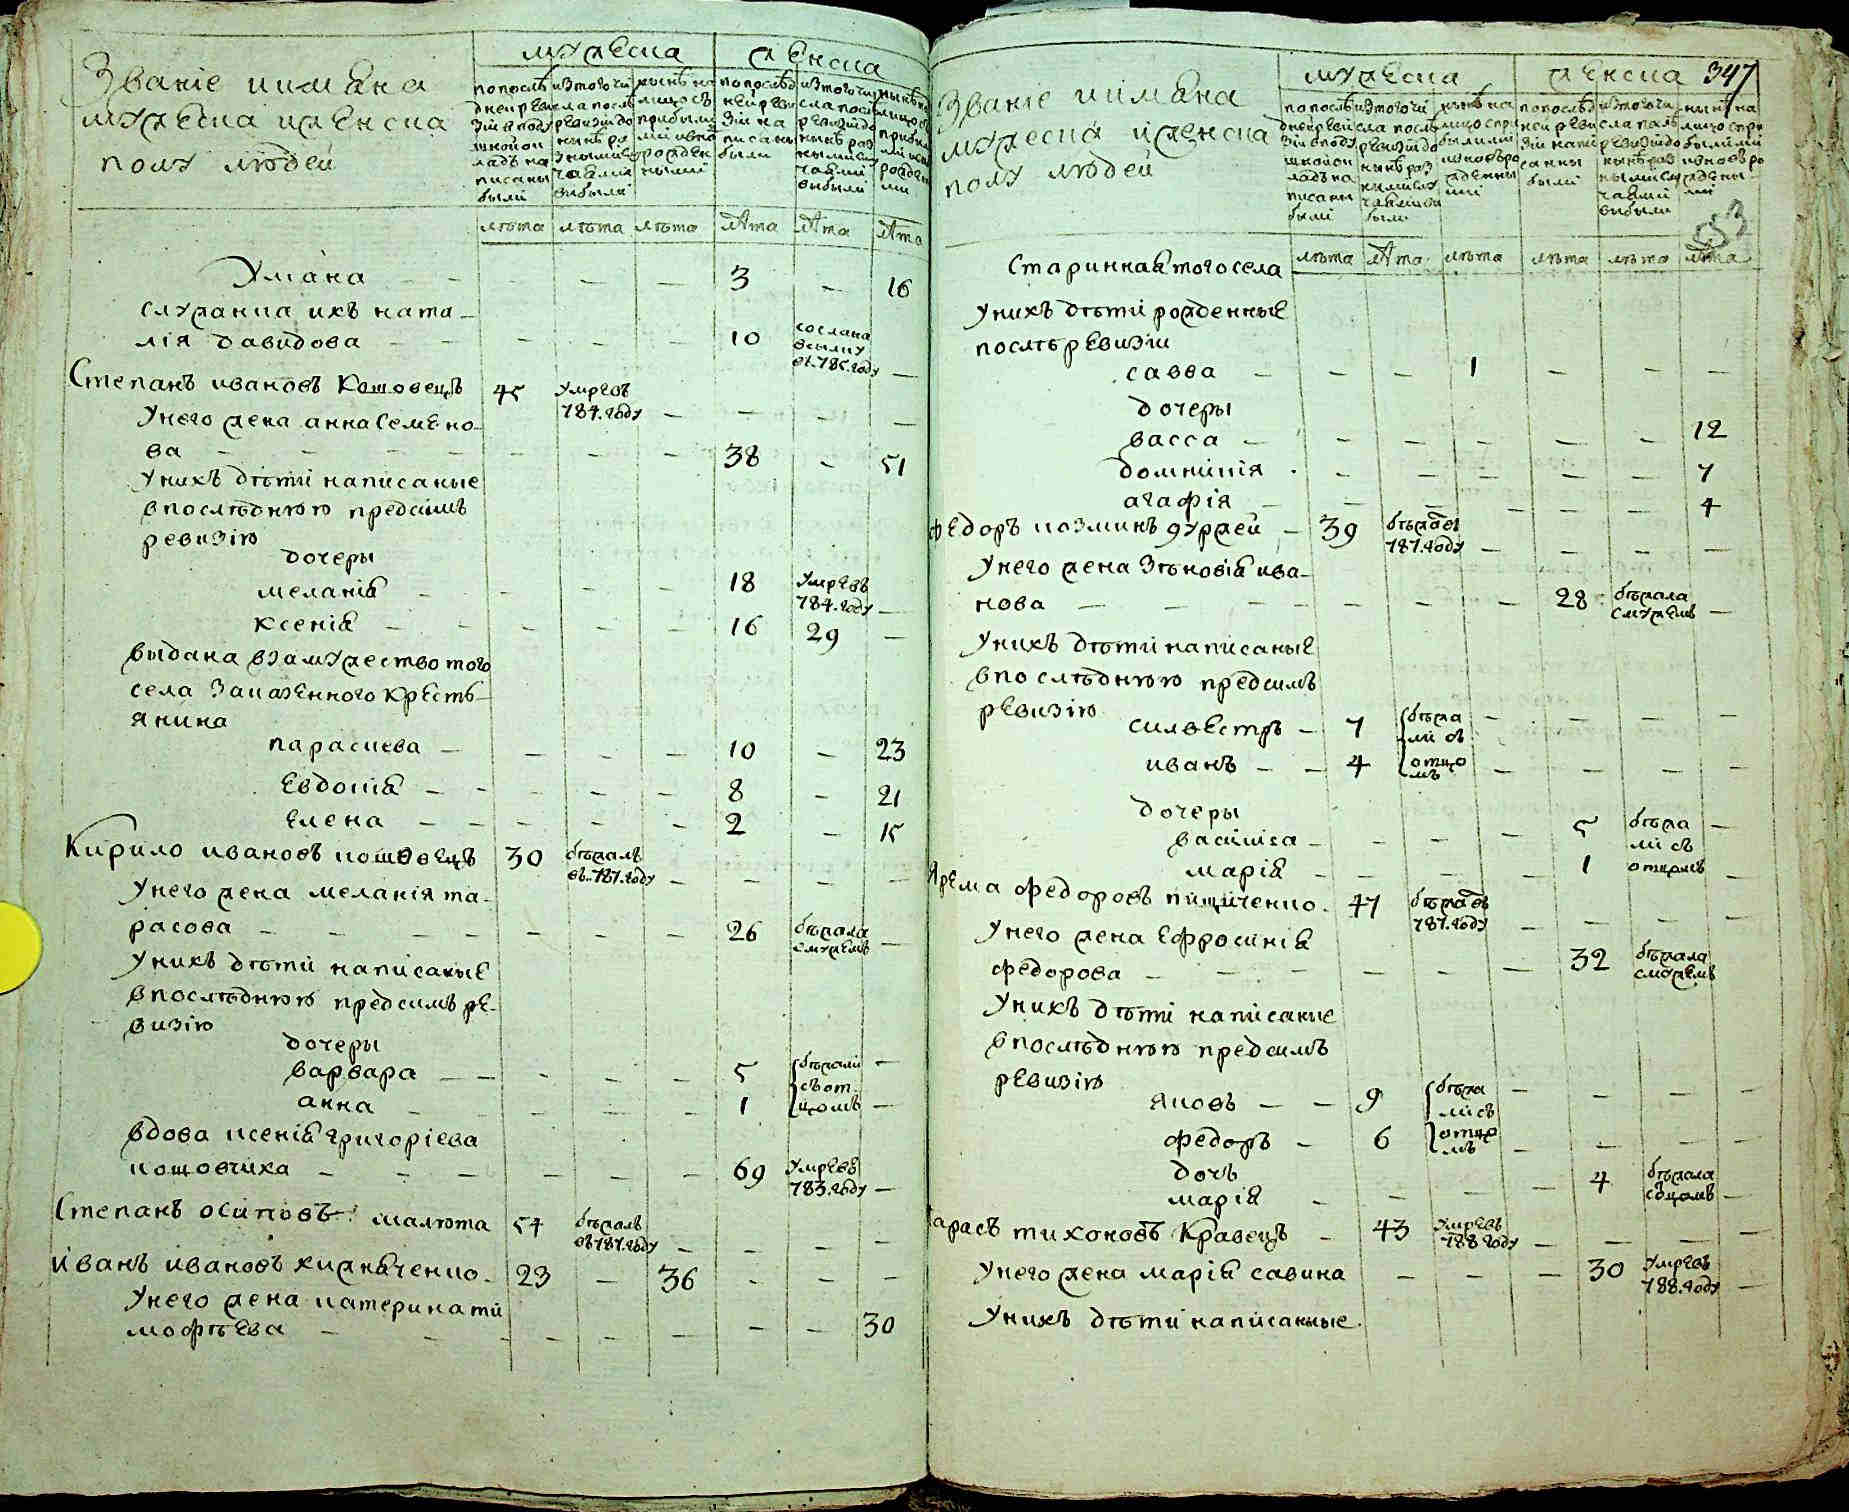 Званіе иимѣна
мужеска иженска
полу людей
мужеска
женска
попослѣ
дней реви
зіи вподу
шной ок
ладъ на
писаны
были
изтого чи
сла послѣ
ревизіи до
нынѣ ра
зными слу
чаями
выбыли
нынѣ на
лицо съ
прибыли
ми ивно
рожден
ными
попослѣд
ней реви
зіи на
писаны
были
изтого чи
сла послѣ
ревизіи до
нынѣ раз
ными слу
чаями
выбыли
лѣта лѣта лѣта лѣта лѣта лѣта
Умана — — — — 3 — 16
служанка ихъ ната-
лія давидова — — — — 10 сослана
всылку
въ 785. году —
Степанъ ивановъ Кошовецъ 45 умревъ
784. году — — — —
унего жена анна семено-
ва — — — — 38 — 51
унихъ дѣти написаные
впослѣднюю предсимъ
ревизію
дочеры
меланія — — — — 18 умревъ
784. году —
ксенія — — — — 16 29 —
выдана взамужество того
села Заказенного кресть-
янина
параскева — — — — 10 — 23
Евдокія — — — — 8 — 21
Елена — — — — 2 — 15
Кирило ивановъ кошовецъ 30 бѣжалъ
въ 787. году — — — —
унего жена меланія та-
расова — — — — 26 бѣжала
смужемъ —
унихъ дѣти написаные
впослѣднюю предсимъ ре-
визію
дочеры
варвара — — — — 5 бѣжали —
анна — — — — 1 сѣот
цомъ —
вдова ксенія григоріева
кошовчиха — — — — 69 умревъ
783. году —
Степанъ осиповъ малюта 54 бѣжалъ
въ 787. году — — — —
иванъ ивановъ кижнѣченко 23 — 36 — — —
унего жена катерина ти
мофѣева — — — — — — 30
347
353
Званіе иимѣна
мужеска иженска
полу людей
мужеска
женска
попослѣ
дней реви
зіи вподу
шной ок
ладъ на
писаны
были
изтого чи
сла послѣ
ревизіи до
нынѣ раз
ными слу
чаями вы
были
нынѣ на
лицо спри
былими
ивновъ ро
жденны
ми
попослѣд
ней реви
зіи напи
санны
были
изтого чи
сла послѣ
ревизіи до
нынѣ раз
ными слу
чаями
выбыли
нынѣ на
лицо спри
былими
ивновъ ро
ждены
ми
лѣта лѣта лѣта лѣта лѣта лѣта
Старинная тогосела
унихъ дѣти рожденные
послѣ ревизіи
савва — — — 1 — — —
дочеры
васса — — — — — — 12
домникія — — — — — 7
агафія — — — — — — 4
федоръ козминъ дуржей — 39 бѣжавъ
787. году — — — —
унего жена Зѣновія ива-
нова — — — — 28 бѣжала
смужемъ —
унихъ дѣти написаные
впослѣднюю предсимъ
ревизію
силвестръ — 7 бѣжа
ли съ — — — —
иванъ — — 4 отцо
мъ — — — —
дочеры
василиса — — — — 5 бѣжа
ли съ —
марія — — — — 1 отцомъ —
Ярема федоровъ пищиченко 47 бѣжавъ
787. году — — — —
унего жена Ефросинія
федорова — — — — 32 бѣжала
смужемъ
унихъ дѣти написаные
впослѣднюю предсимъ
ревизію
яковъ — — 9 бѣжа
ли съ — — — —
федоръ — 6 отцо
мъ — — — —
дочь
марія — — — — 4 бѣжала
соцомъ —
Тарасъ тихоновъ Кравецъ — 43 умревъ
788 году — — — —
унего жена марія савина — — — 30 умревъ
788. году —
унихъ дѣти написанные